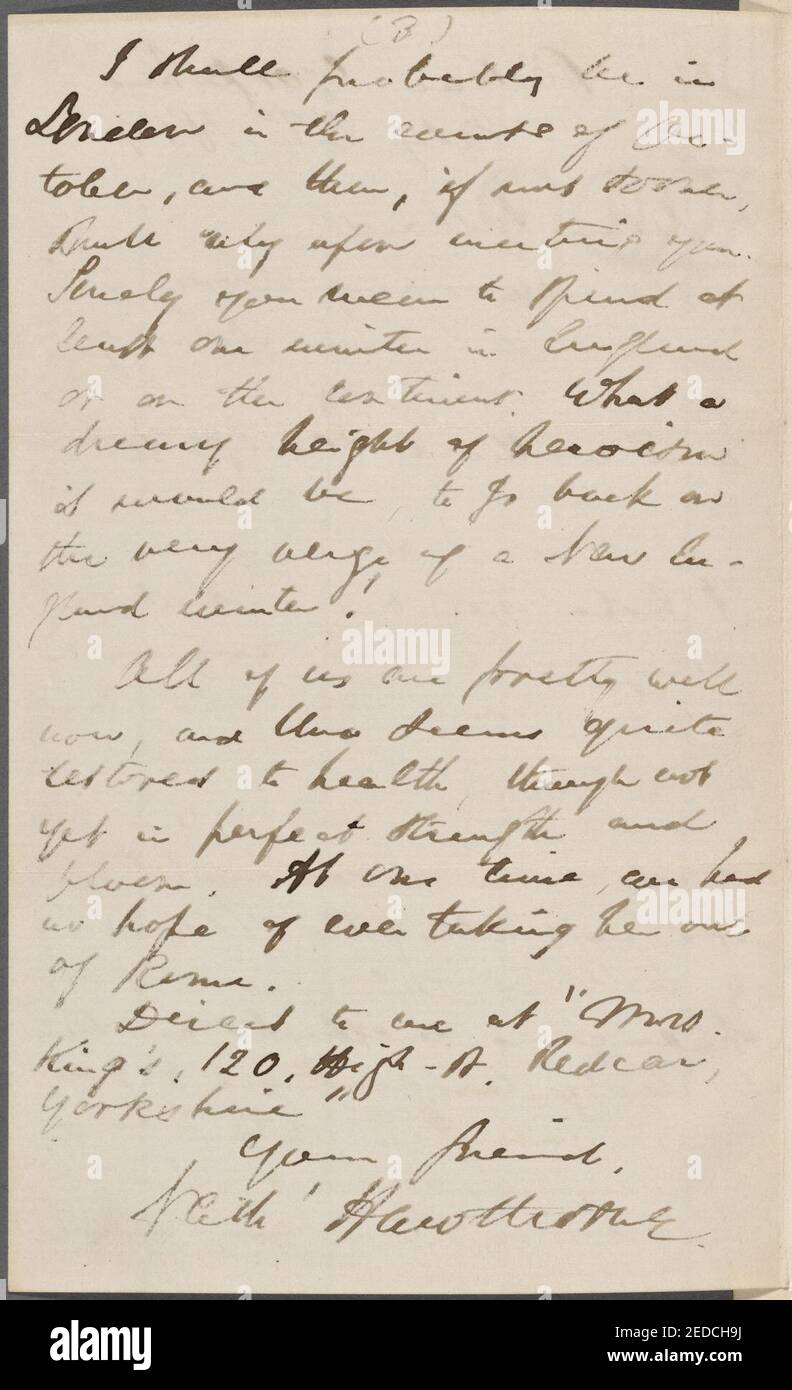 (3)
I shall probably be in
London in the course of Oc-
tober, and then, if not sooner,
shall rely upon meeting you.
Surely you mean to spend at
least one winter in England
or on the continent. What a
dreary height of heroism
it would be, to go back on
the very verge of a New En-
gland winter!
All of us are pretty well
now, and Una seems quite
restored to health, though not
yet in perfect strength and
bloom. At one time, we had
no hope of ever taking her out
of Rome.
Direct to me at "Mrs.
King's, 120, High-St. Redcar,
Yorkshire"
Your friend,
Nath' Hawthorne.
alamy
Image ID: 2EDCH9J
www.alamy.com